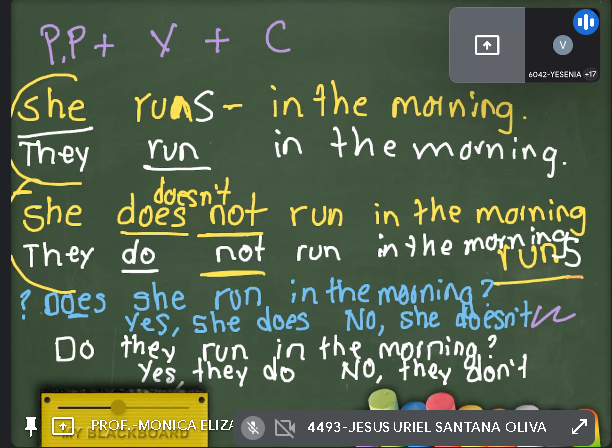 P.P + V + C
V
6042-YESENIA +17
she runs - in the morning.
They run in the morning.
doesn't
she does not run in the morning
They do not run in the morning
runs
? Does she run in the morning?
Yes, she does No, she doesn't
Do they run in the morning?
Yes they do No, they don't
PROF.-MONICA ELIZA
4493-JESUS URIEL SANTANA OLIVA
Y BLACKBOARD